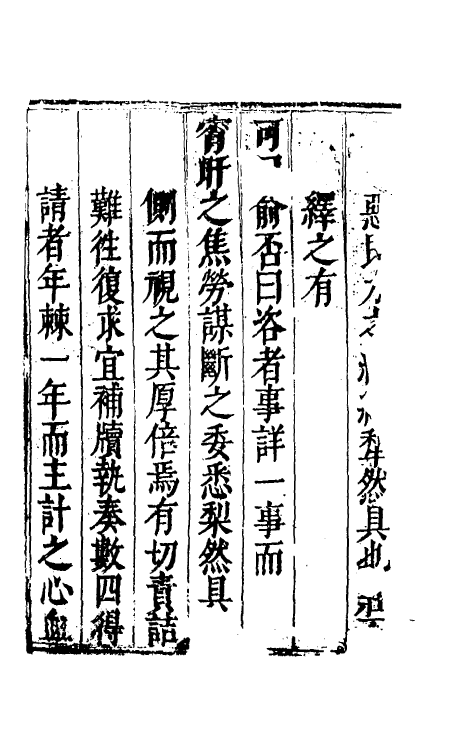 然具也
繹之有
可俞否曰咨者事詳一事而
宵旰之焦勞謀斷之委悉犁然具
側而視之其厚倍焉有切責詰
難徃復求宜補牘執奏數四得
請者年棘一年而主計之心血